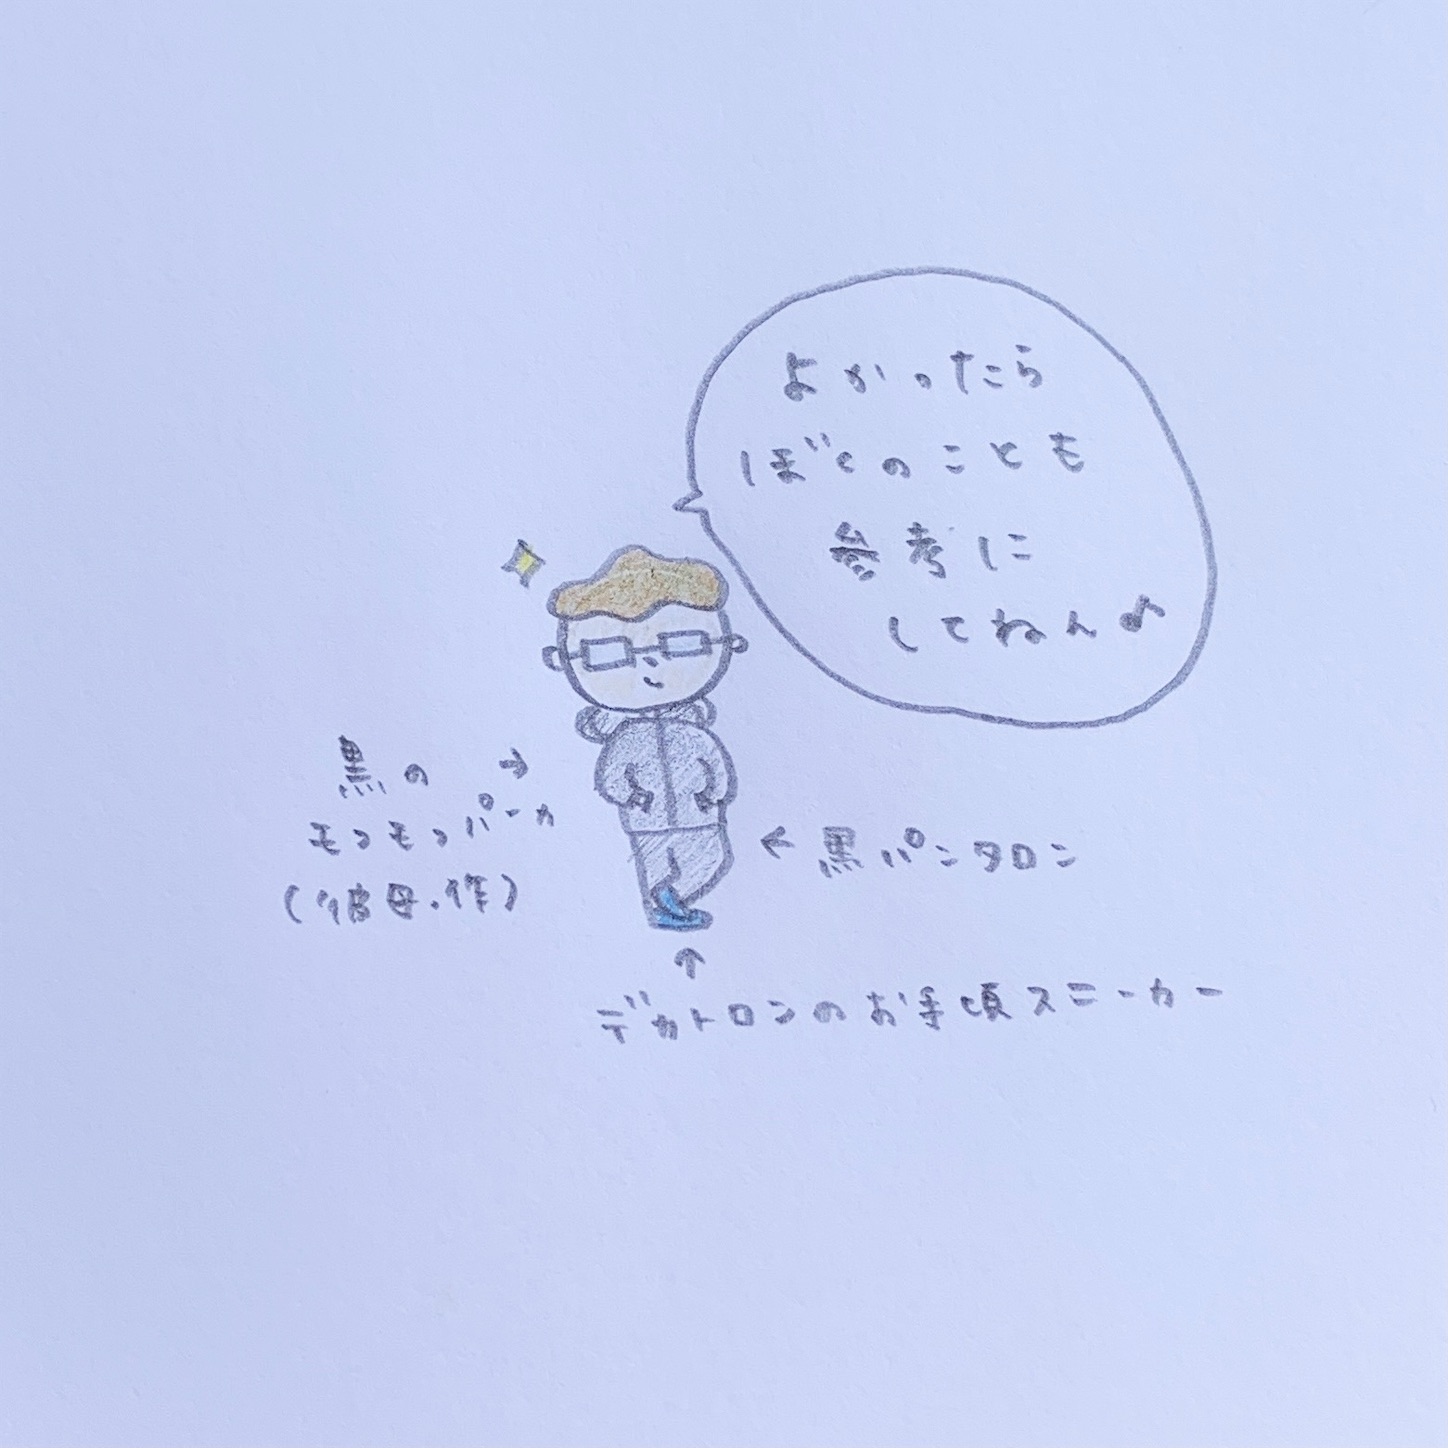 よかったら
ぼくのことも
参考に
してねん♪
黒の →
モコモコパーカ
(彼母.作)
← 黒パンタロン
↑
デカトロンのお手頃スニーカー